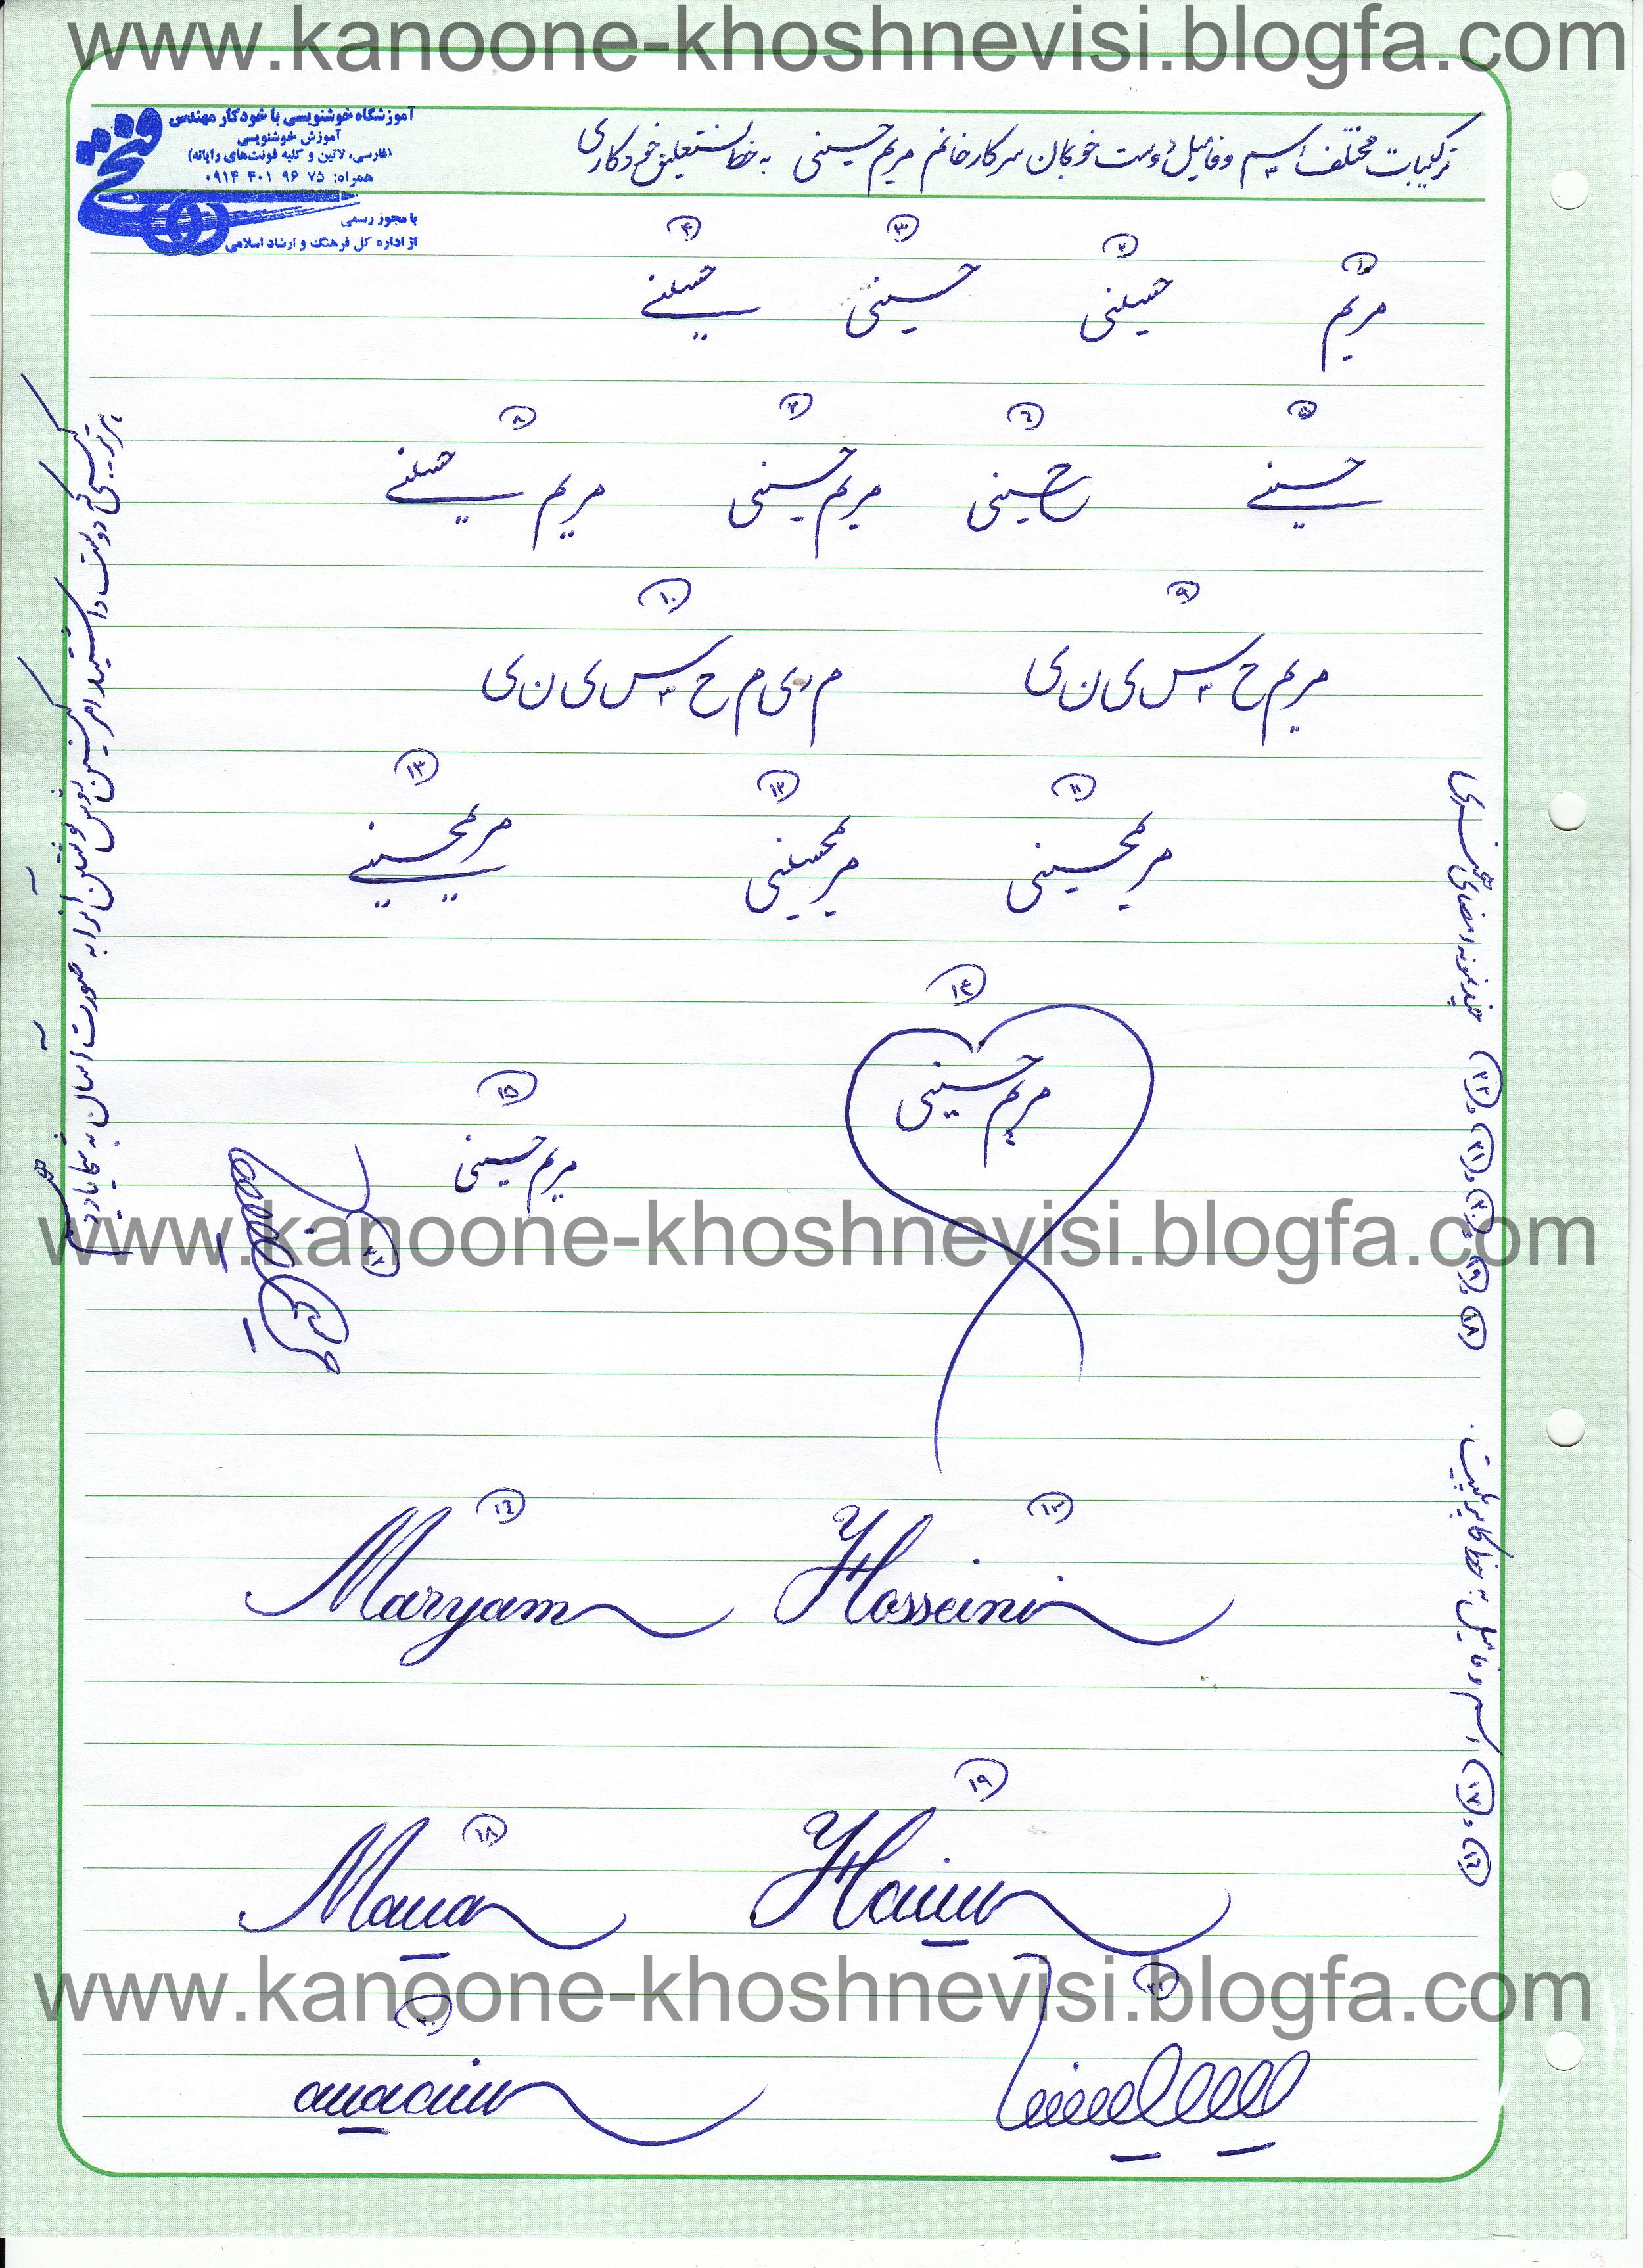 www.kanoone-khoshnevisi.blogfa.com
آموزشگاه خوشنویسی با خودکار مهندس
فتحی
آموزش خوشنویسی
(فارسی، لاتین و کلیه فونت‌های رایانه)
همراه: ۰۹۱۴ ۴۰۱ ۹۶ ۷۵
با مجوز رسمی
از اداره کل فرهنگ و ارشاد اسلامی
ترکیبات مختلف اسم و فامیل دوست خوبمان سرکار خانم مریم حسینی به خط نستعلیق خودکاری
۱ ۲ ۳ ۴
مریم حسینی حسینی حسینی
۵ ۶ ۷ ۸
حسینی حسینی مریم حسینی مریم حسینی
۹ ۱۰
مریم ح س ی ن ی م ر ی م ح س ی ن ی
۱۱ ۱۲ ۱۳
مریم حسینی مریم حسینی مریم حسینی
۱۴
مریم حسینی
۱۵
مریم حسینی
۲۲
www.kanoone-khoshnevisi.blogfa.com
۱۶ ۱۷
Maryam Hosseini
۱۸ ۱۹
www.kanoone-khoshnevisi.blogfa.com
۲۰ ۲۱
۱۶ و ۱۷ اسم و فامیل به خط کاپرپلیت.
۱۸ و ۱۹ و ۲۰ و ۲۱ و ۲۲ چند نمونه امضای هنری
هر ترکیبی که دوست داشتید امر کنین روش نوشتن آنرا به صورت ارسال به شما یاد دهم